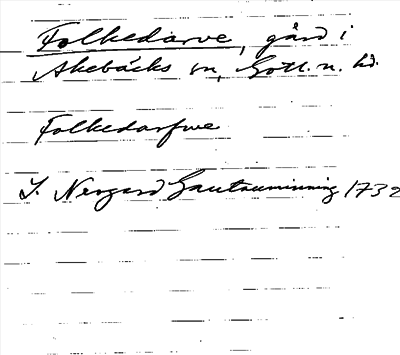 Folkedarve, gård i
Akebäcks sn, Gotl. n. hd.
Folkedarfwe
J. Nergard Gautauminning 1732